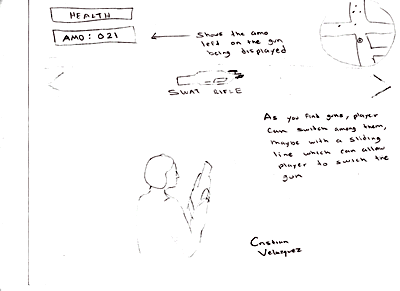 HEALTH
AMO: 021
Shows the amo
left on the gun
being displayed
SWAT RIFLE
As you find guns, player
can switch among them,
maybe with a sliding
line which can allow
player to swich the
gun
Cristian
Velazquez